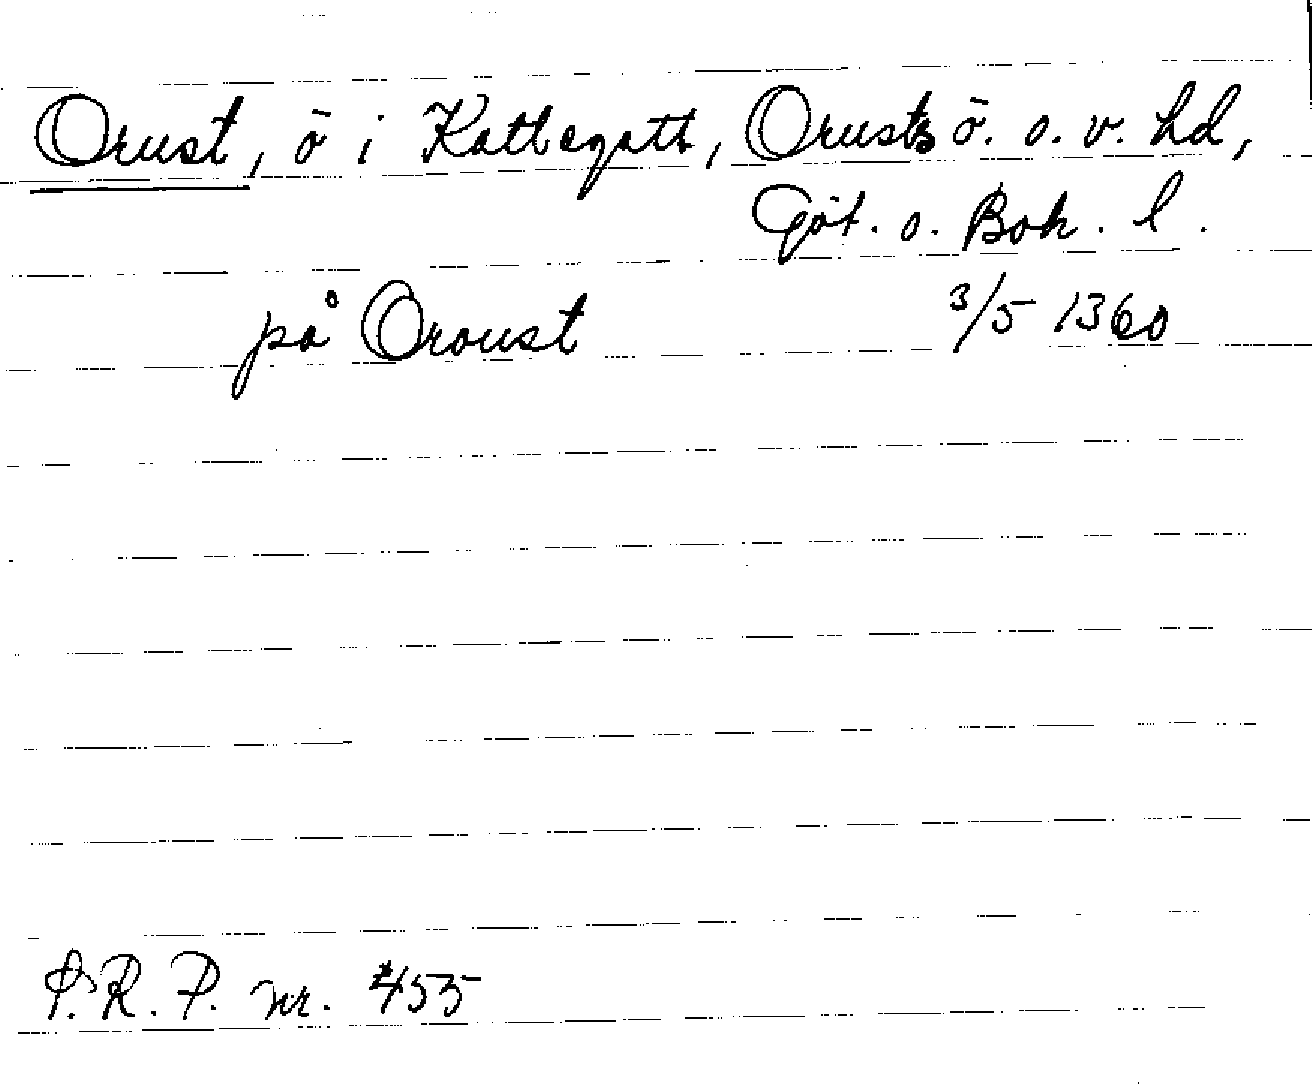 Orust, ö i Kattegatt, Orusts ö. o. v. hd,
Göt. o. Boh. l.
på Oroust 3/5 1360
P.R.P. nr. 455